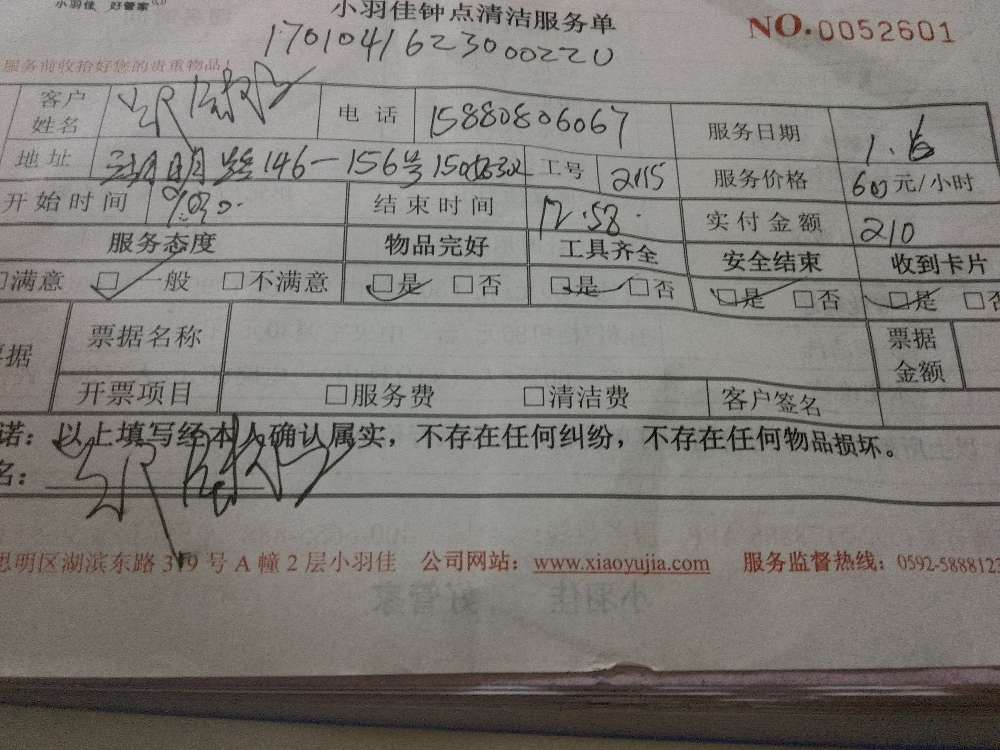 小羽佳 好管家
小羽佳钟点清洁服务单
NO.0052601
1701041623000220
服务前收拾好您的贵重物品！
客户姓名 电话 15880806067 服务日期 1.6
地址 146-156号 工号 2115 服务价格 60元/小时
开始时间 结束时间 12.58. 实付金额 210
服务态度 物品完好 工具齐全 安全结束 收到卡片
□满意 □一般 □不满意 □是 □否 □是 □否 □是 □否 □是 □否
票据 票据名称 票据金额
开票项目 □服务费 □清洁费 客户签名
诺：以上填写经本人确认属实，不存在任何纠纷，不存在任何物品损坏。
名：
思明区湖滨东路319号A幢2层小羽佳 公司网站：www.xiaoyujia.com 服务监督热线：0592-5888123